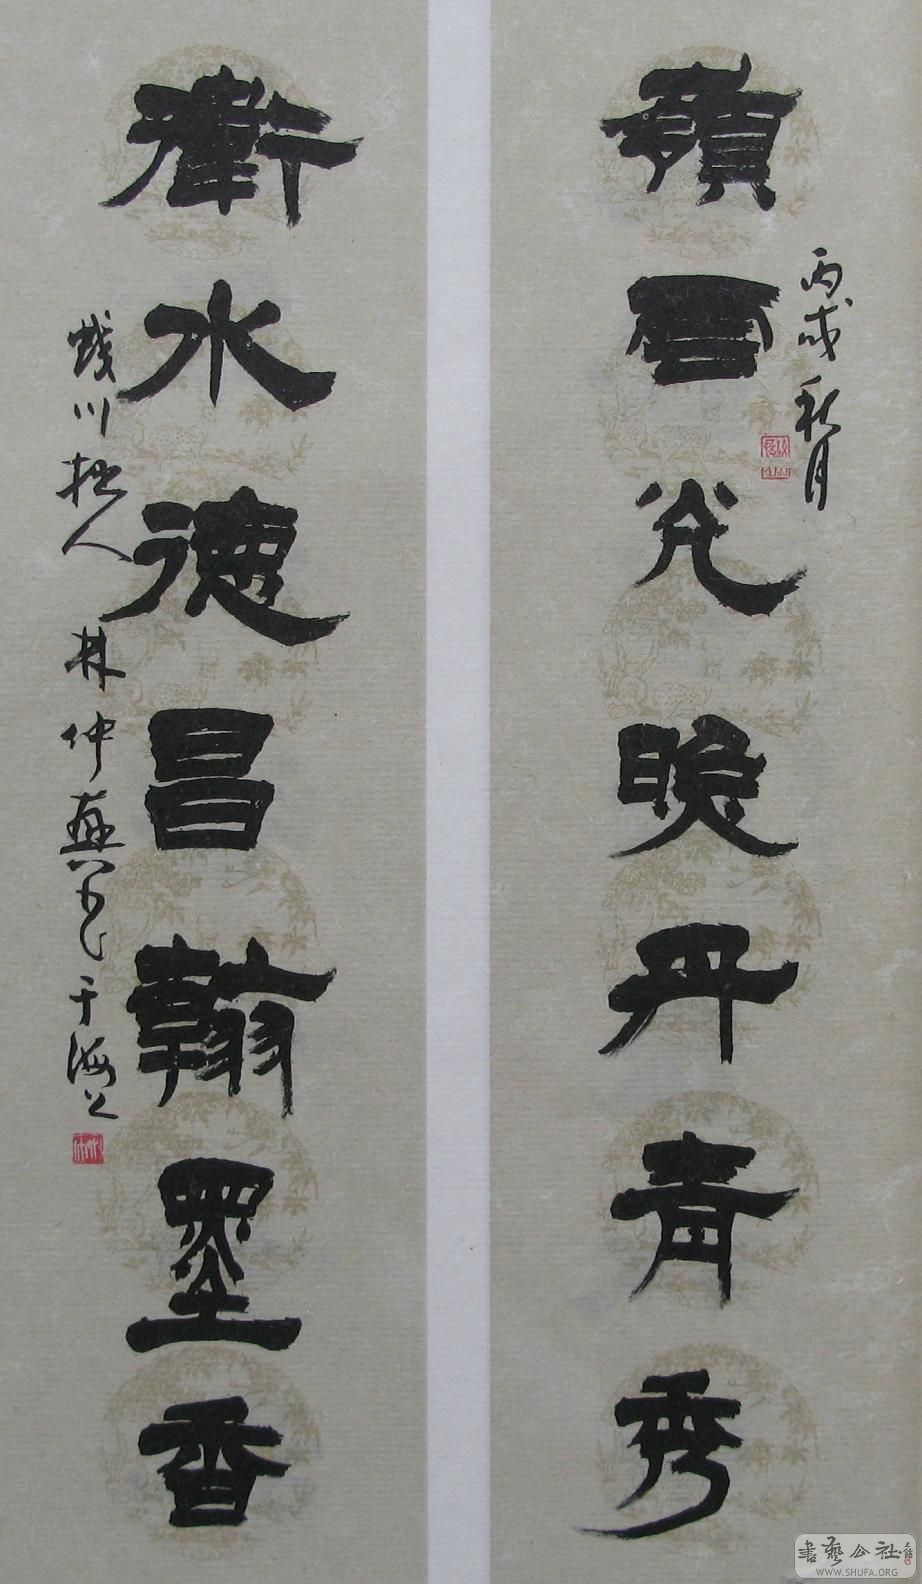 丙戌秋月
嶺雲光晚丹青秀
衛水德昌翰墨香
川拙人林仲興书于海上
書藝公社
WWW.SHUFA.ORG